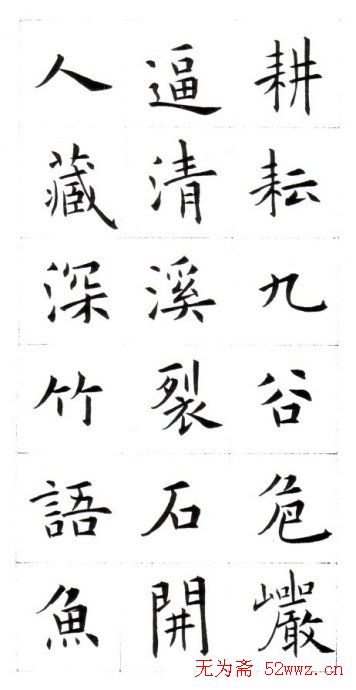 耕耘九谷危巖
逼清溪裂石開
人藏深竹語魚
无为斋 52wwz.cn